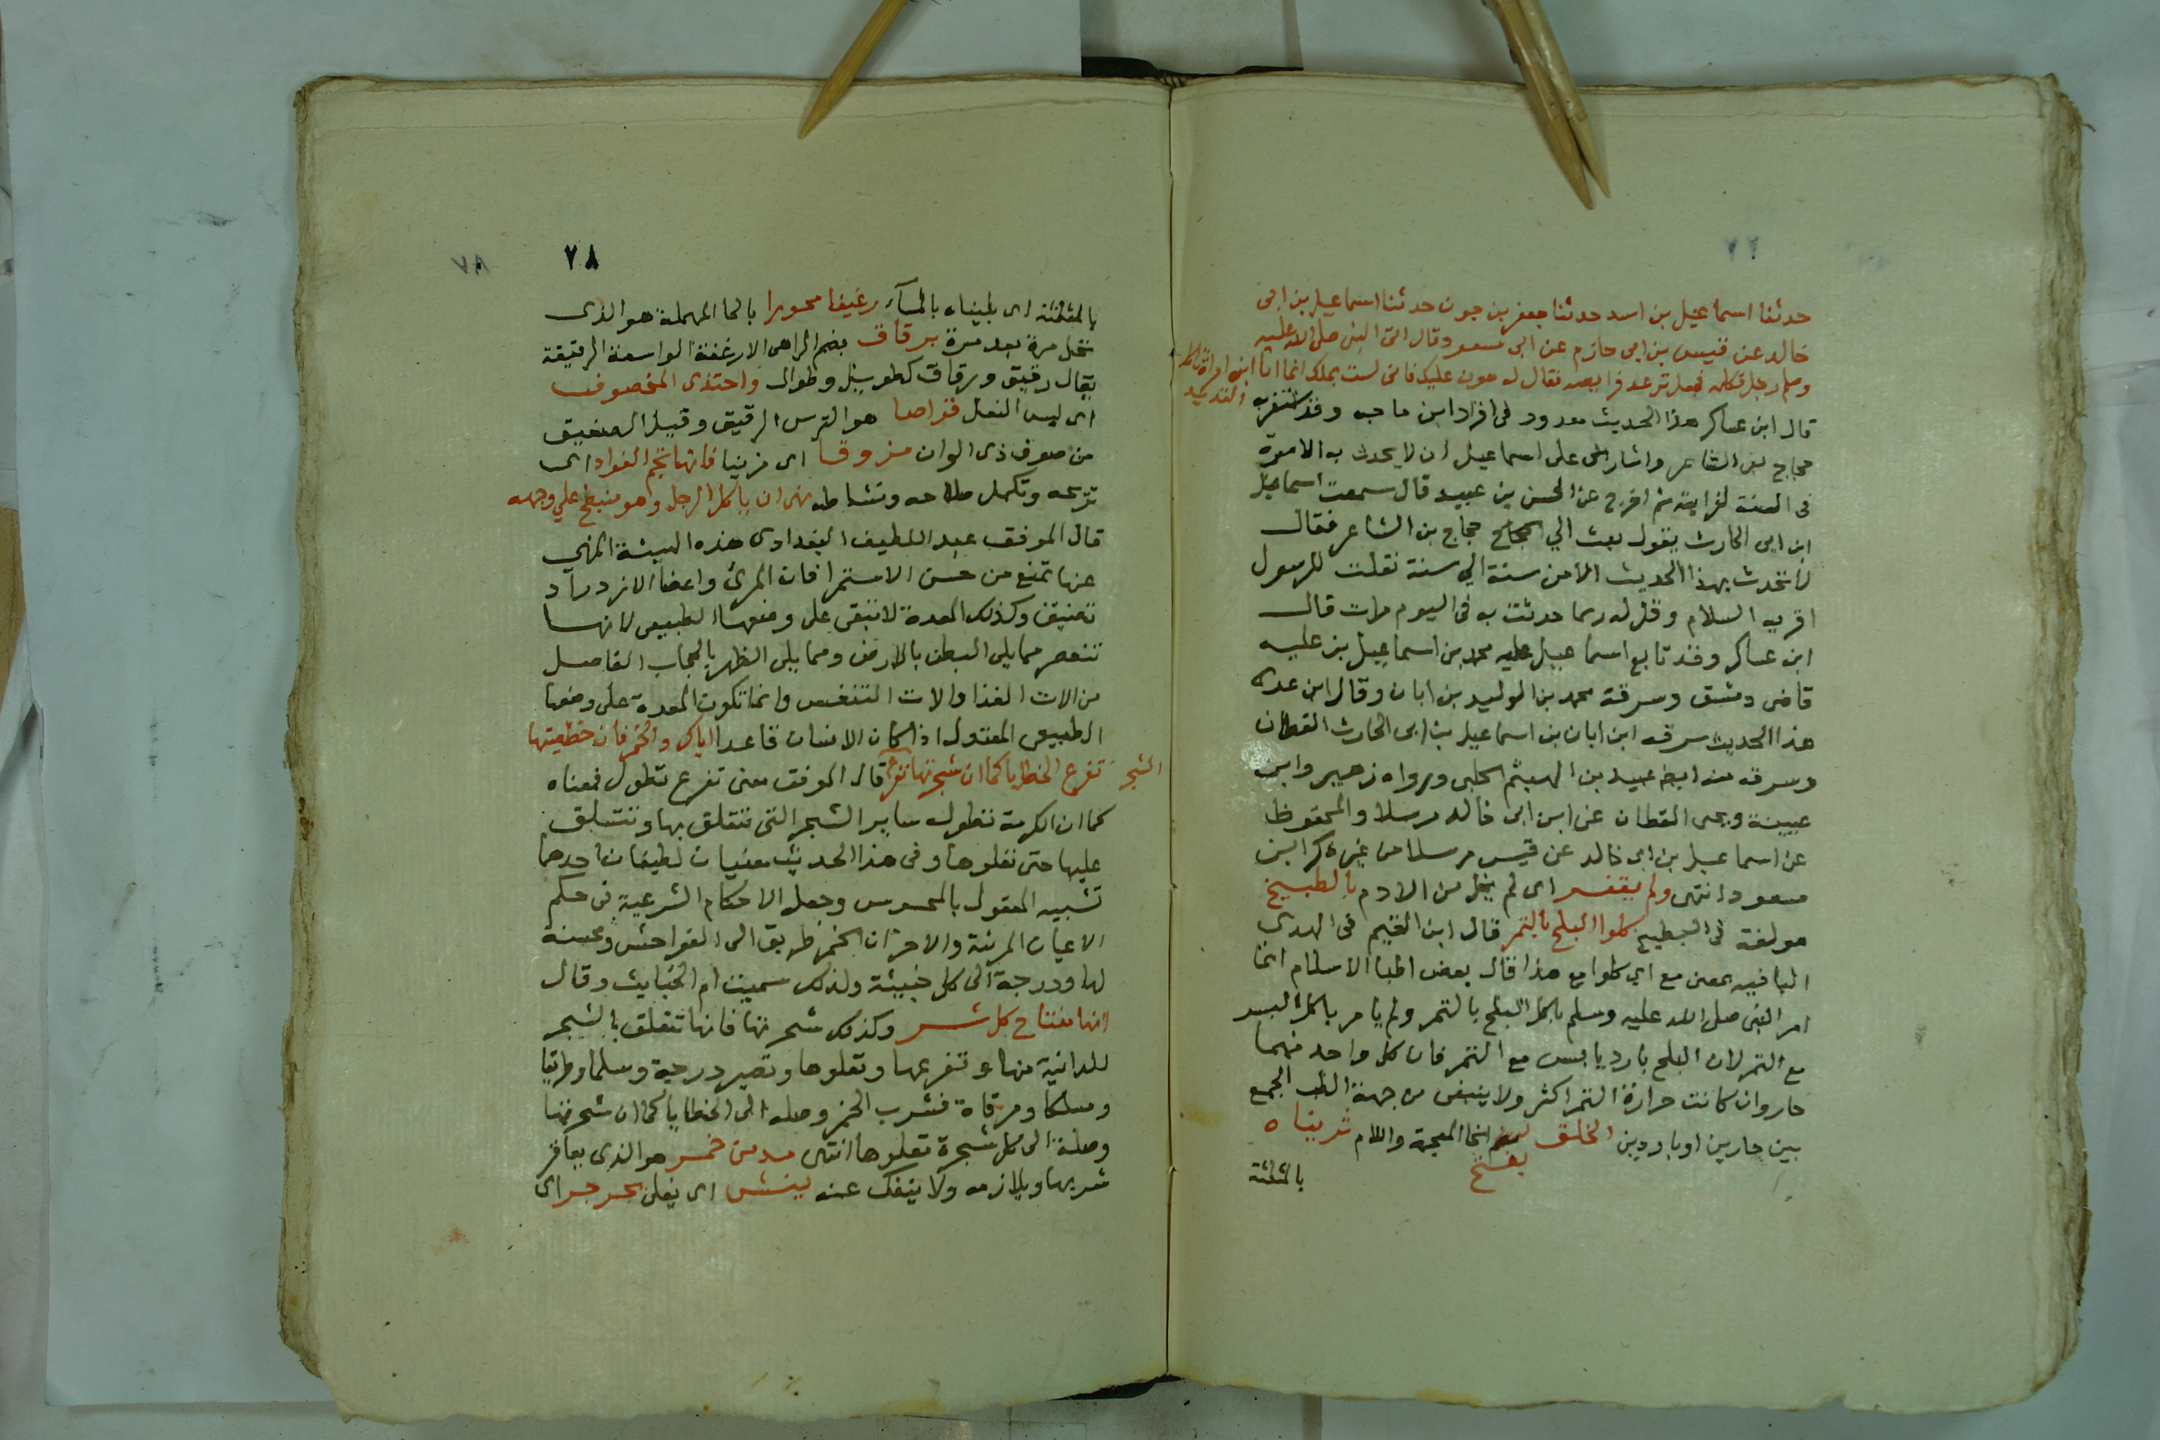 حدثنا اسماعيل بن اسد حدثنا جعفر بن جون حدثنا اسماعيل بن ابى
خالد عن قيس بن ابى حازم عن ابى مسعود قال اتى النبى صلى الله عليه
وسلم رجل فكلمه فجعل ترعد فرايصه فقال له هون عليك فانى لست بملك انما انا ابن امراة تاكل
القديد
قال ابن عساكر هذا الحديث معدود فى افراد ابن ماجه وقد استغربه
حجاج بن الشاعر واشار على اسماعيل ان لا يحدث به الا مرة
فى السنة لغرابته ثم اخرج عن الحسن بن عبيد قال سمعت اسماعيل
ابن ابى الحارث يقول بعث الي حجاج بن الشاعر فقال
لا تحدث بهذا الحديث الا من سنة الى سنة فقلت للرسول
اقريه السلام وقل له ربما حدثت به فى اليوم مرات قال
ابن عساكر وقد تابع اسماعيل عليه محمد بن اسماعيل بن عليه
قاضى دمشق وسرقه محمد بن الوليد بن ابان وقال ابن عدى
هذا الحديث سرقه ابن ابان بن اسماعيل بن ابى الحارث القطان
وسرقه منه ايضا عبيد بن الهيثم الحلبى ورواه زهير وابن
عيينة ويحى القطان عن ابن ابى خالد مرسلا والمحفوظ
عن اسماعيل بن ابى خالد عن قيس مرسلا من غير ذكر ابن
مسعود انتهى ولم يقفر اى لم يخل من الادم بالطبيخ
هو لغة فى البطيخ كلوا البلح بالتمر قال ابن القيم فى الهدى
البا فيه بمعنى مع اى كلوا مع هذا قال بعض اطبا الاسلام انما
امر النبى صلى الله عليه وسلم باكل البلح بالتمر ولم يامر باكل البسر
مع التمر لان البلح بارد يابس مع التمر فان كل واحد منهما
حار وان كانت حرارة التمر اكثر ولا ينبغى من جهة الطب الجمع
بين حارين او باردين الخلق بفتح الخا المعجمة واللام ثريناه
بالمثلثة
٧٨
٧٨
بالمثلثة اى بليناه بالمآء رغيفا محورا بالحا المهملة هو الذى
نخل مرة بعد مرة برقاق بضم الرا هى الارغفة الواسعة الرقيقة
يقال رقيق ورقاق كطويل وطوال واحتذى المخصوف
اى لبس النعل قراصا هو الترس الرقيق وقيل الصفيق
من صوف ذى الوان مزوقا اى مزينا فانها تجم الفواد اى
تريحه وتكمل صلاحه ونشاطه نهى ان ياكل الرجل وهو منبطح علي وجهه
قال الموفق عبد اللطيف البغدادى هذه الهيئة المنهي
عنها تمنع من حسن الاستمرا فان المرئ واعضا الازدرآد
تضيق وكذلك المعدة لا تبقى على وضعها الطبيعى لانها
تنعصر مما يلى البطن بالارض ومما يلى الظهر بالحجاب الفاصل
من الات الغذا والات التنفس وانما تكون المعدة على وضعها
الطبيعى المعتدل اذا كان الانسان قاعدا اياك والخمر فان خطيتها
تفرع الخطايا كما ان شجرتها تفرع الشجر قال الموفق معنى تفرع تطول فمعناه
كما ان الكرمة تطول ساير الشجر التى تتعلق بها وتتسلق
عليها حتى تعلوها وفى هذا الحديث معنيان لطيفان احدهما
تشبيه المعقول بالمحسوس وجعل الاحكام الشرعية فى حكم
الاعيان المرئية والاخر ان الخمر طريق الى الفواحش ومحسنة
لها ودرجة الى كل خبيثة ولذلك سميت ام الخبايث وقال
انها مفتاح كل شر وكذلك شجرتها فانها تتعلق بالشجر
للدانية منها وتفرعها وتعلوها وتصير درجة وسلما وطريقا
ومسلكا ومرقاة فشرب الخمر وصلة الى الخطايا كما ان شجرتها
وصلة الى كل شجرة تعلوها انتهى مدمن خمر هو الذى يعاقر
شربها ويلازمه ولا ينفك عنه ينش اى يغلى يجرجر اى